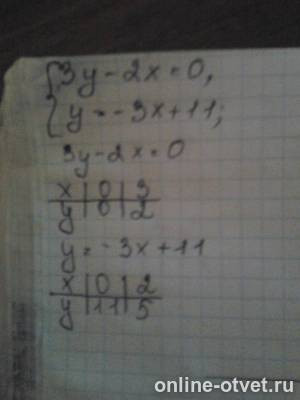 {3y-2x=0,
{y=-3x+11;
3y-2x=0
x|0|3
y|0|2
y=-3x+11
x|0|2
y|11|5
online-otvet.ru